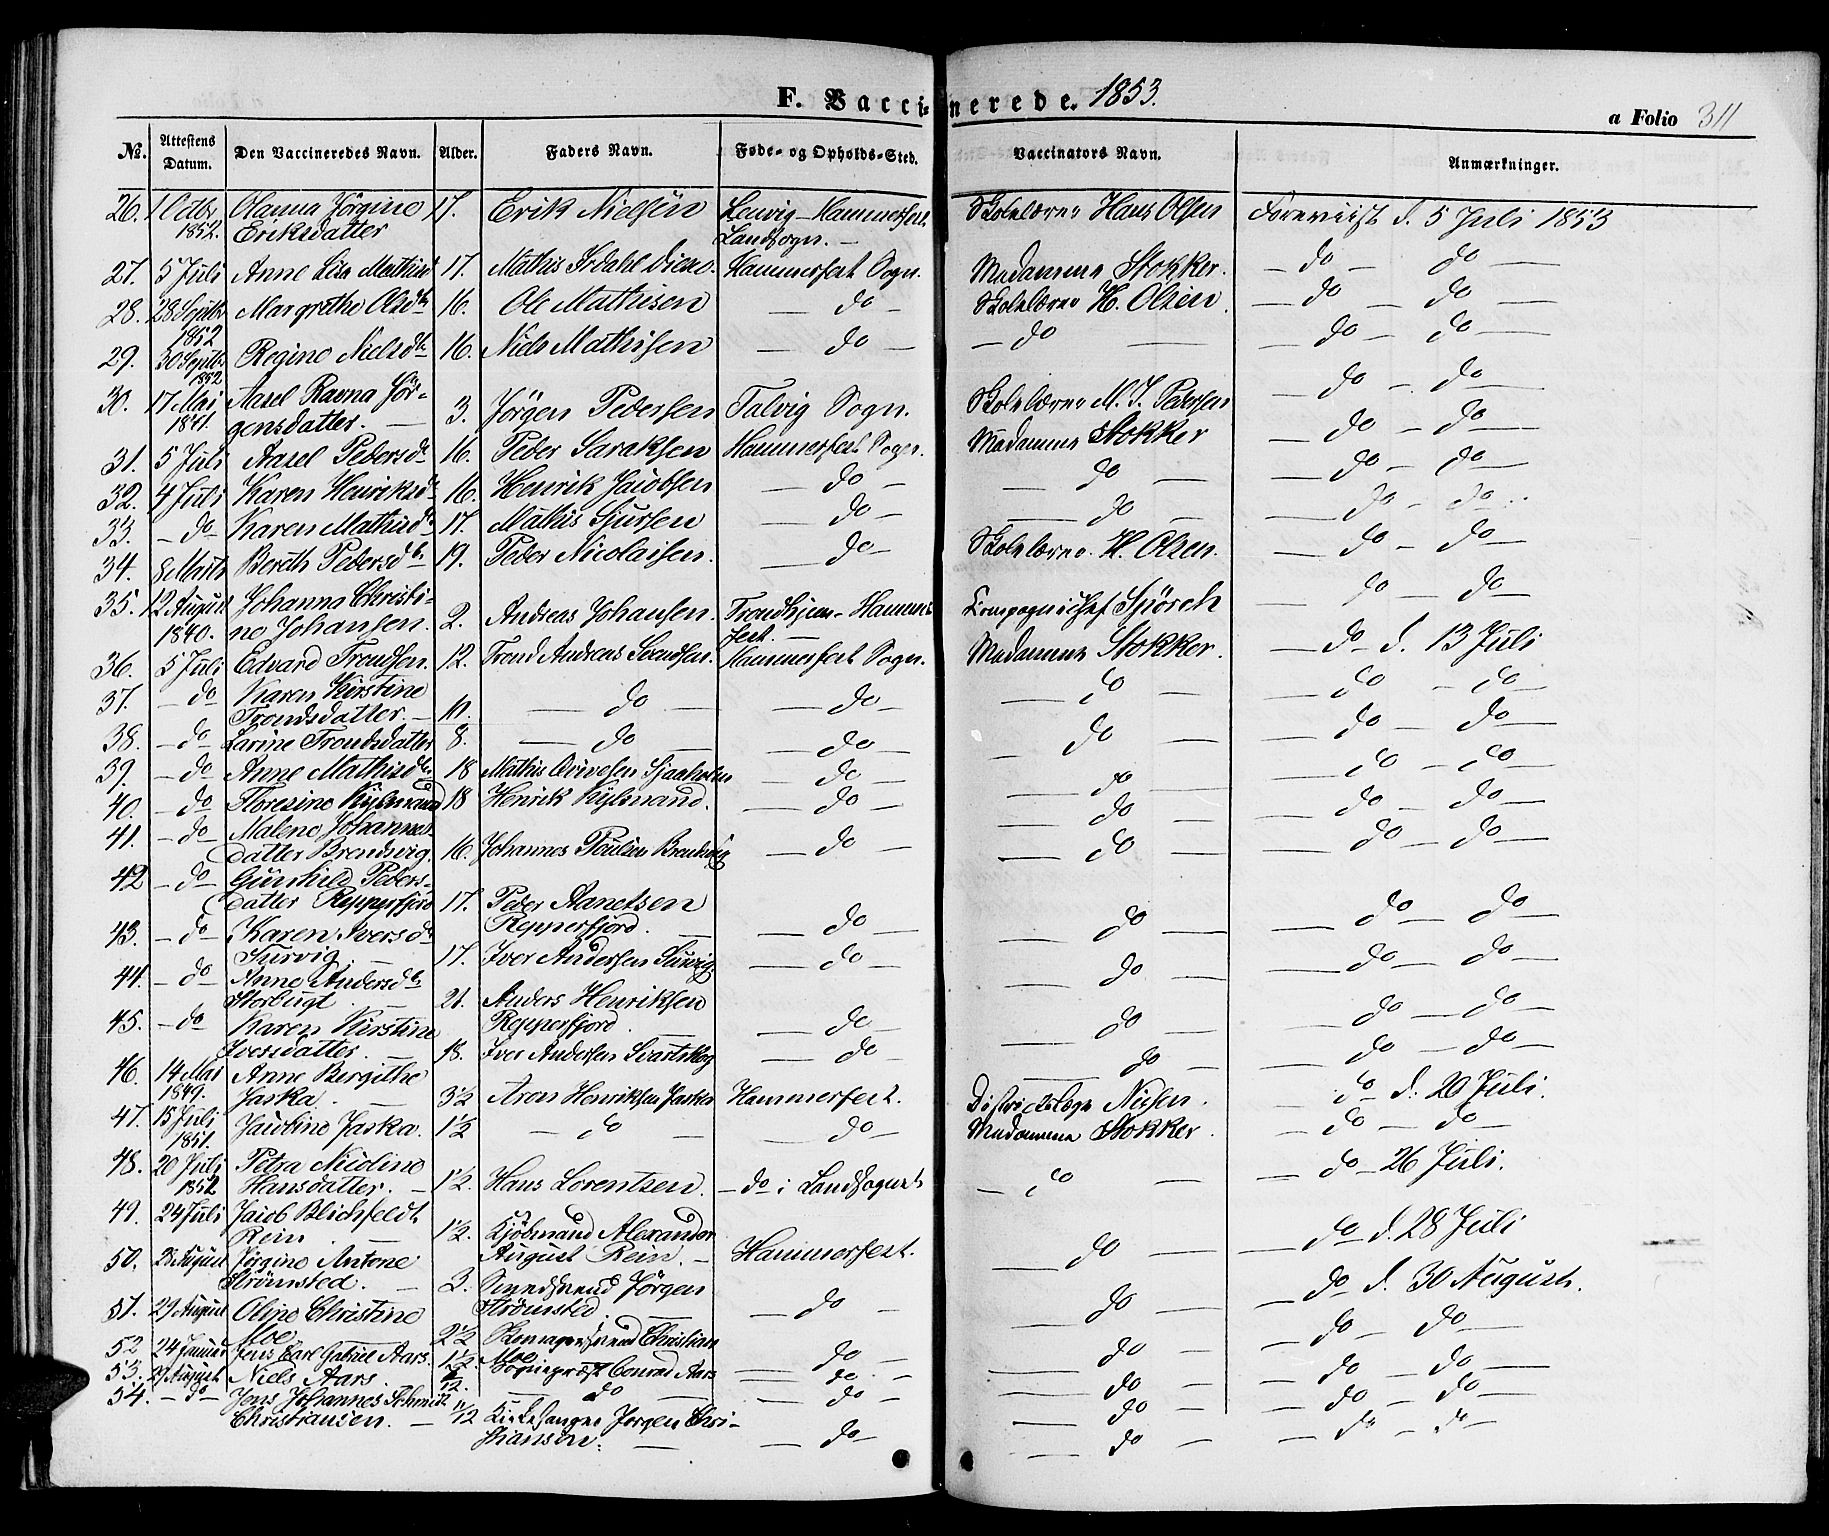 F. Vaccinerede. 1853.
a Folio 311
No. Attestens Datum. Den Vaccineredes Navn. Alder. Faders Navn. Føde- og Opholds-Sted. Vaccinators Navn. Anmærkninger.
26. 1 Octbr 1852. Olanna Jørgine Eriksdatter 17. Erik Nielsen Hammerfest Landsogn. Skolelærer Hans Olsen Foreviist d. 5 Juli 1853
27. 5 Juli Anne Lisa Mathisd 17. Mathis Hammerfest Sogn. Madamme Stokker. do do
28. 28 Septbr 1852 Margrethe Olsdtr 16. Ole Mathisen do Skolelærer H. Olsen. do do
29. 30 Septbr 1852 Regine Nielsdtr 16. Niels Mathisen do do do do
30. 17 Mai 1841. Aasel Ravna Jørgensdatter. 3. Jørgen Pedersen Talvig Sogn. Skolelærer M. J. Pedersen do do
31. 5 Juli Aasel Pedersd 16. Peder Saraksen Hammerfest Sogn. Madamme Stokker do do
32. 4 Juli Karen Henriksd 16. Henrik Jacobsen do do do do
33. do Karen Mathisd 17. Mathis Sjursen do do do do
34. 8 Marts Bereth Pedersdtr 19. Peder Nicolaisen. do Skolelærer H. Olsen. do do
35. 12 August 1840. Johanna Christine Johansen. 2. Andreas Johansen Trondhjem - Hammerfest. Compagnichef Spörch do do
36. 5 Juli Edvard Trondsen. 12. Trond Andreas Svendsen. Hammerfest Sogn. Madamme Stokker. do d. 13 Juli
37. do Karen Kirstine Trondsdatter. 10. do do do do do
38. do Larine Trondsdatter 8. do do do do do
39. do Anne Mathisdtr. 18 Mathis do do do do
40. do Floresine 18 Henrik do do do do
41. do Malene Johannesdatter Brendsvig. 16. Johannes Poulsen Brendsvig do do do do
42 do Gunhild Pedersdatter Repperfjord 17. Peder Aanetsen Repperfjord. do do do do
43. do Karen Iversd 17. Iver Andersen do do do do
44. do Anne Andersdtr Storbugt. 21. Anders Henriksen Repperfjord. do do do do
45. do Karen Kirstine Iversdatter. 18. Iver Andersen Svartskog do do do do
46. 14 Mai 1849. Anne Bergithe Jaska. 3½ Aron Henriksen Jaska Hammerfest. Districtslæge Nissen. do d. 20 Juli.
47. 15 Juli 1851. Jacobine Jaska. 1½ do do Madamme Stokker. do do
48. 20 Juli 1852 Petra Nicoline Hansdatter. 1½. Hans Lorentzen. do i Landsognet do do 26 Juli.
49. 24 Juli Jacob Blichfeldt Rein. 1½. Kjøbmand Alexander August Rein. Hammerfest. do do d. 28 Juli
50. 28 August Jørgine Antone Strømsted. 3. Smedsvend Jörgen Strømsted. do do do d. 30 August.
51. 29 August Oline Christine Moe 2½ Skomagersvend Christian Moe do do do do
52 24 Januar Jens Carl Gabriel Aars. 1½. Sognepræst Conrad Aars do do do do
53. 29 August Niels Aars. do do do do do
54. do Jens Johannes Schmidt Christiansen. 11/12 Kirkesanger Jørgen Christiansen. do do do do